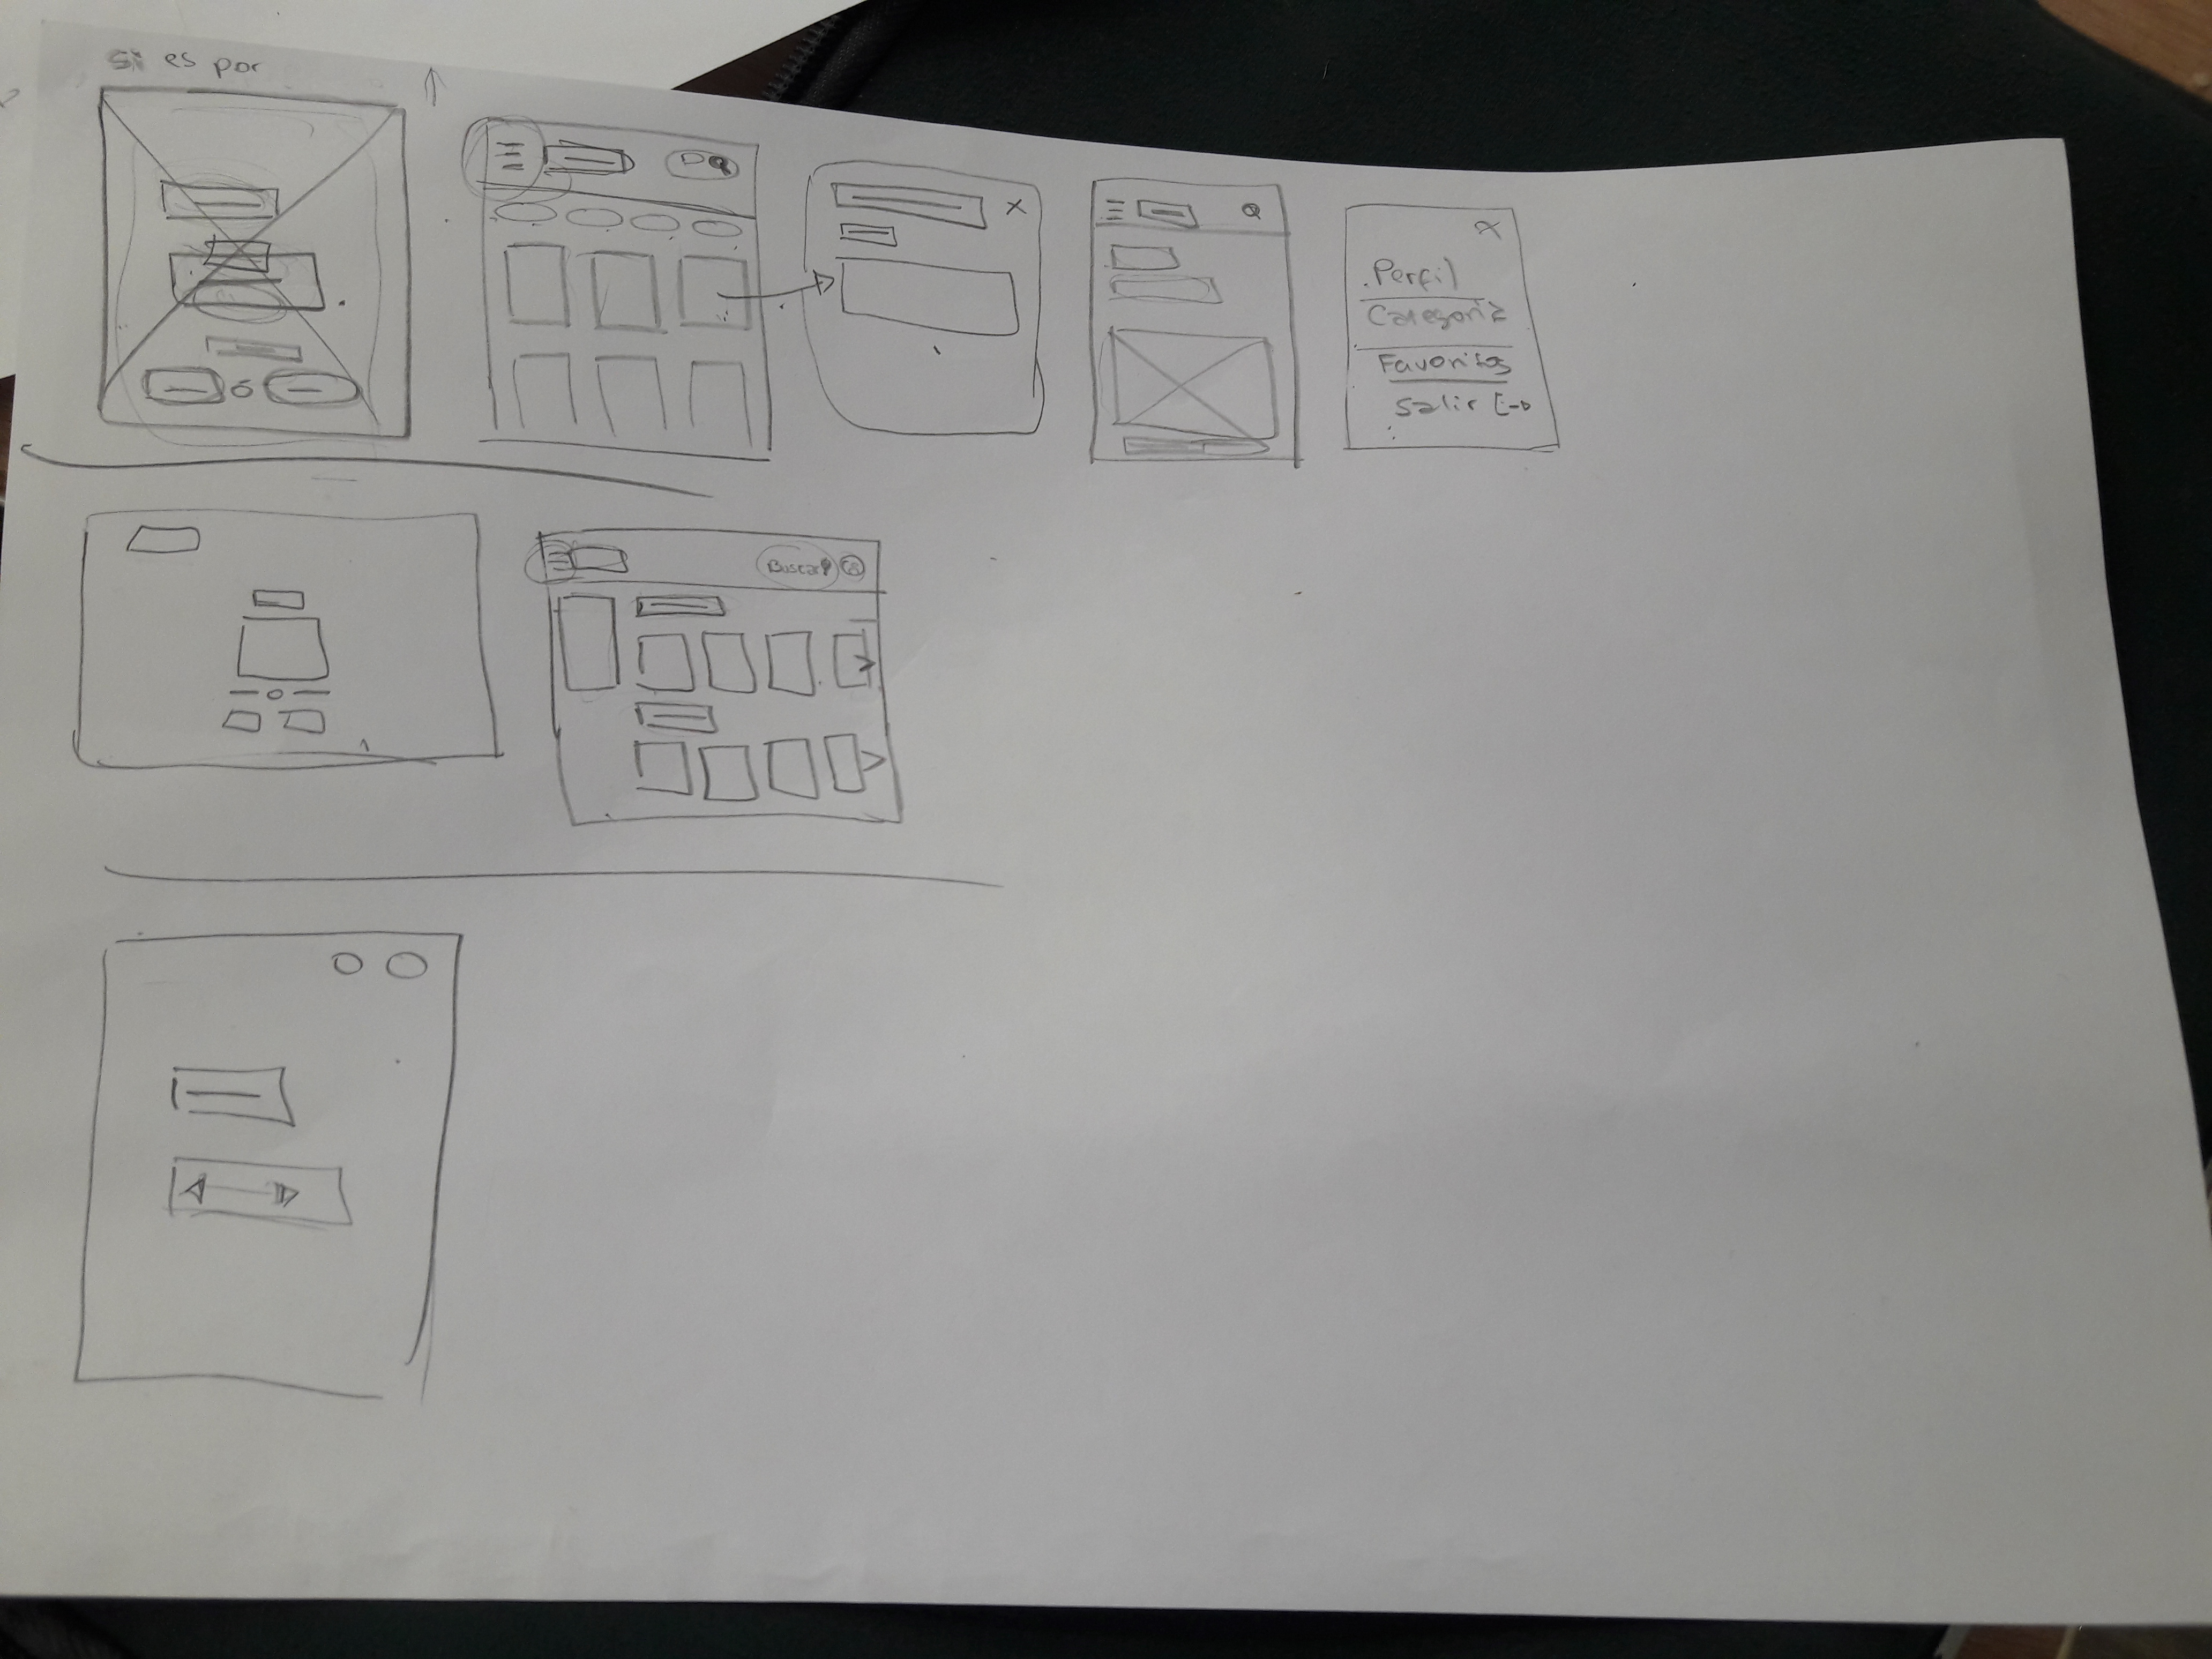 Si es por
Perfil
Categoria
Favoritos
Salir
Buscar